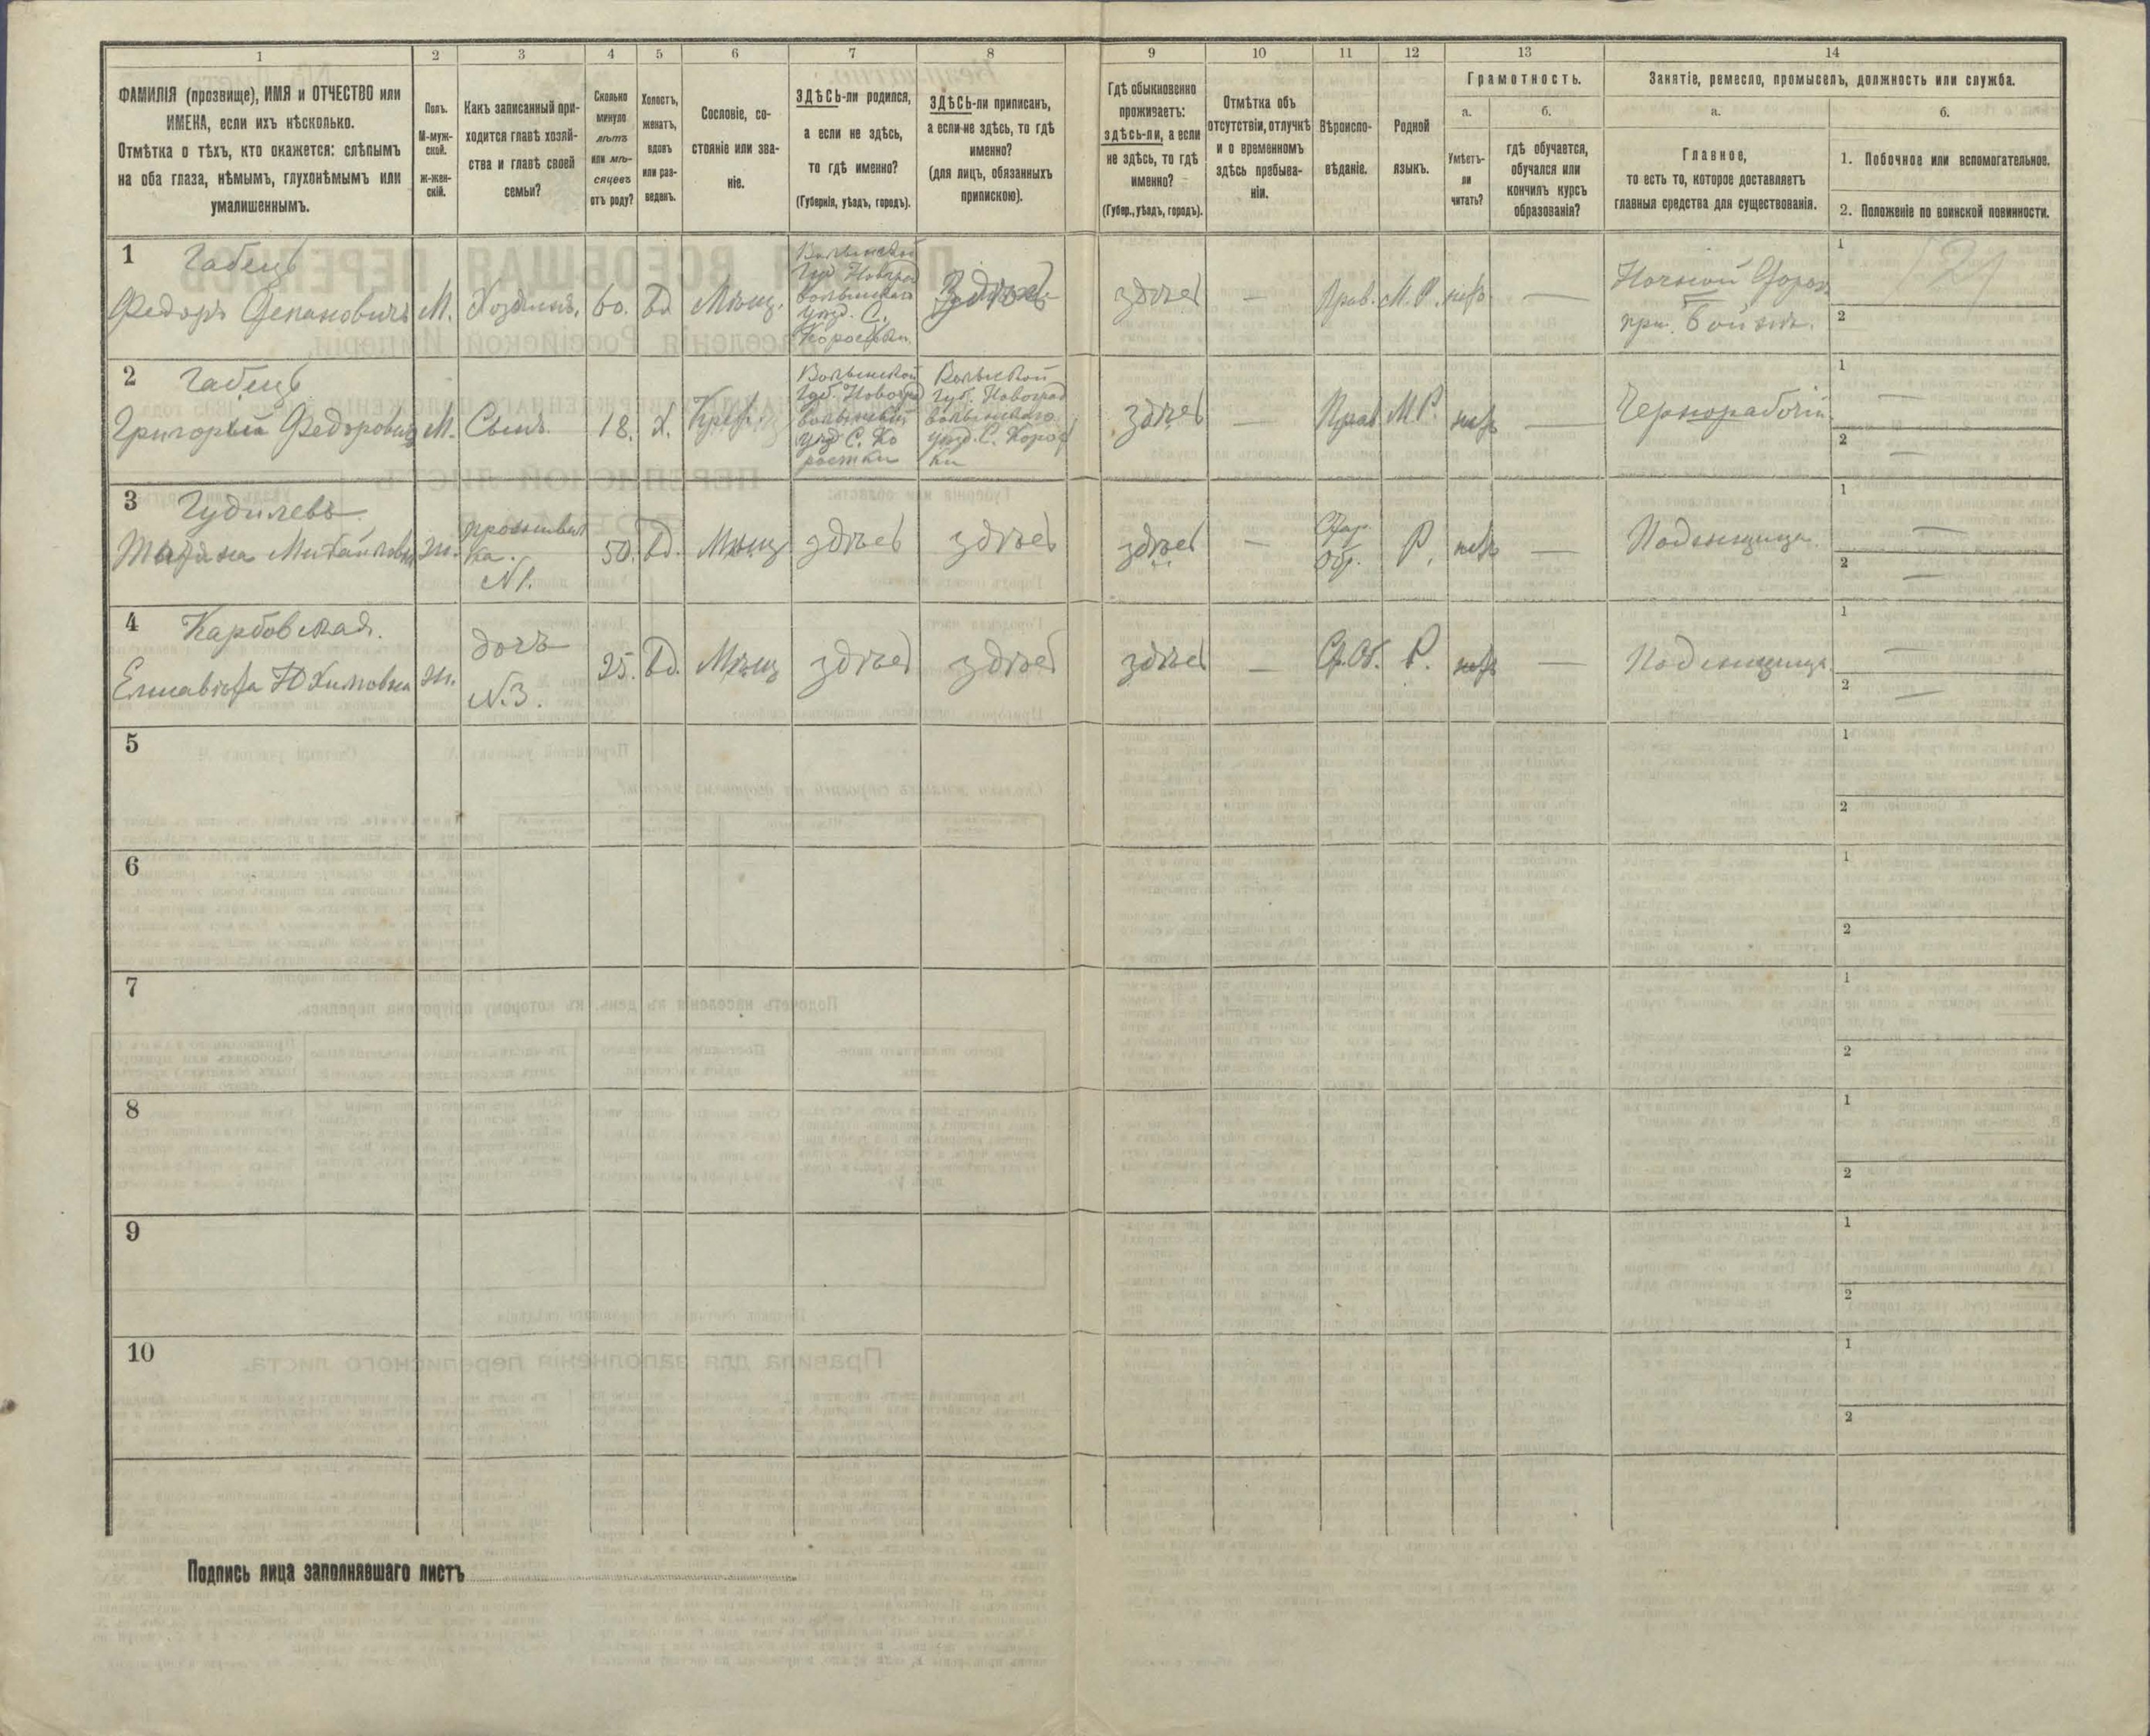 1
2
3
4
5
6
7
8
9
10
11
12
13
14
ФАМИЛІЯ (прозвище), ИМЯ и ОТЧЕСТВО или
ИМЕНА, если ихъ нѣсколько.
Отмѣтка о тѣхъ, кто окажется: слѣпымъ
на оба глаза, нѣмымъ, глухонѣмымъ или
умалишеннымъ.
Полъ.
М-муж-
ской.
Ж-жен-
скій.
Какъ записанный при-
ходится главѣ хозяй-
ства и главѣ своей
семьи?
Сколько
минуло
лѣтъ
или мѣ-
сяцевъ
отъ роду?
Холостъ,
женатъ,
вдовъ
или раз-
веденъ.
Сословіе, со-
стояніе или зва-
ніе.
ЗДѢСЬ-ли родился,
а если не здѣсь,
то гдѣ именно?
(Губернія, уѣздъ, городъ).
ЗДѢСЬ-ли приписанъ,
а если-не здѣсь, то гдѣ
именно?
(для лицъ, обязанныхъ
припискою).
Гдѣ обыкновенно
проживаетъ:
здѣсь-ли, а если
не здѣсь, то гдѣ
именно?
(Губер., уѣздъ, городъ).
Отмѣтка объ
отсутствіи, отлучкѣ
и о временномъ
здѣсь пребыва-
ніи.
Вѣроиспо-
вѣданіе.
Родной
языкъ.
Грамотность.
а.
Умѣетъ-
ли
читать?
б.
гдѣ обучается,
обучался или
кончилъ курсъ
образованія?
Занятіе, ремесло, промыселъ, должность или служба.
а.
Главное,
то есть то, которое доставляетъ
главныя средства для существованія.
б.
1. Побочное или вспомогательное.
2. Положеніе по воинской повинности.
1
Габецъ
Федоръ Степановичъ
М.
Хозяинъ.
60.
Вд
Мѣщ.
Волынской
Губ. Новград
волынскаго
уѣзд. С.
Коростки.
Здѣсь
здѣсь
—
Прав.
М. Р.
нѣтъ
—
Ночной Сторож
при Бойнѣ.
1
2
2
Габецъ
Григорій Федорович
М.
Сынъ
18.
Х.
Крест.
Волынской
Губ. Новогра
волынскій
уѣзд С. Ко
ростки
Волынской
Губ. Новоград
волынскаго
уѣзд. С. Корост
ки
здѣсь
—
Прав
М. Р.
нѣтъ
—
Чернорабочій
1
—
2
—
3
Гудилевъ
Татьяна Михайловн
Ж.
проживал
ка.
N 1.
50.
Вд.
Мѣщ
здѣсь
здѣсь
здѣсь
—
Стар.
Обр.
Р.
нѣтъ
—
Поденщица.
1
—
2
—
4
Карбовская.
Елисавета Юхимовна
Ж.
дочь
N. 3.
25.
Вд.
Мѣщ
здѣсь
здѣсь
здѣсь
—
Ст. Об.
Р.
нѣтъ
—
Поденщица.
1
—
2
—
5
1
2
6
1
2
7
1
2
8
1
2
9
1
2
10
1
2
Подпись лица заполнявшаго листъ